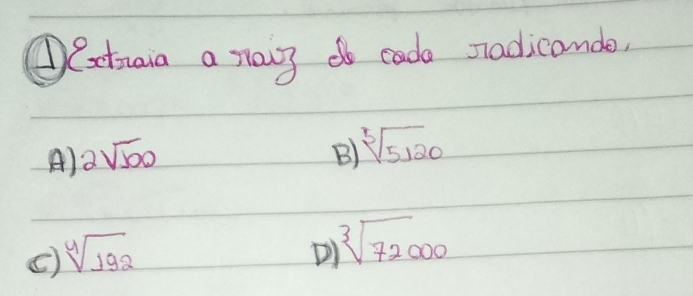 ① Extraia a raiz de cada radicando.
A) 2√100 B) ⁵√5120
C) ⁴√192 D) ³√72000